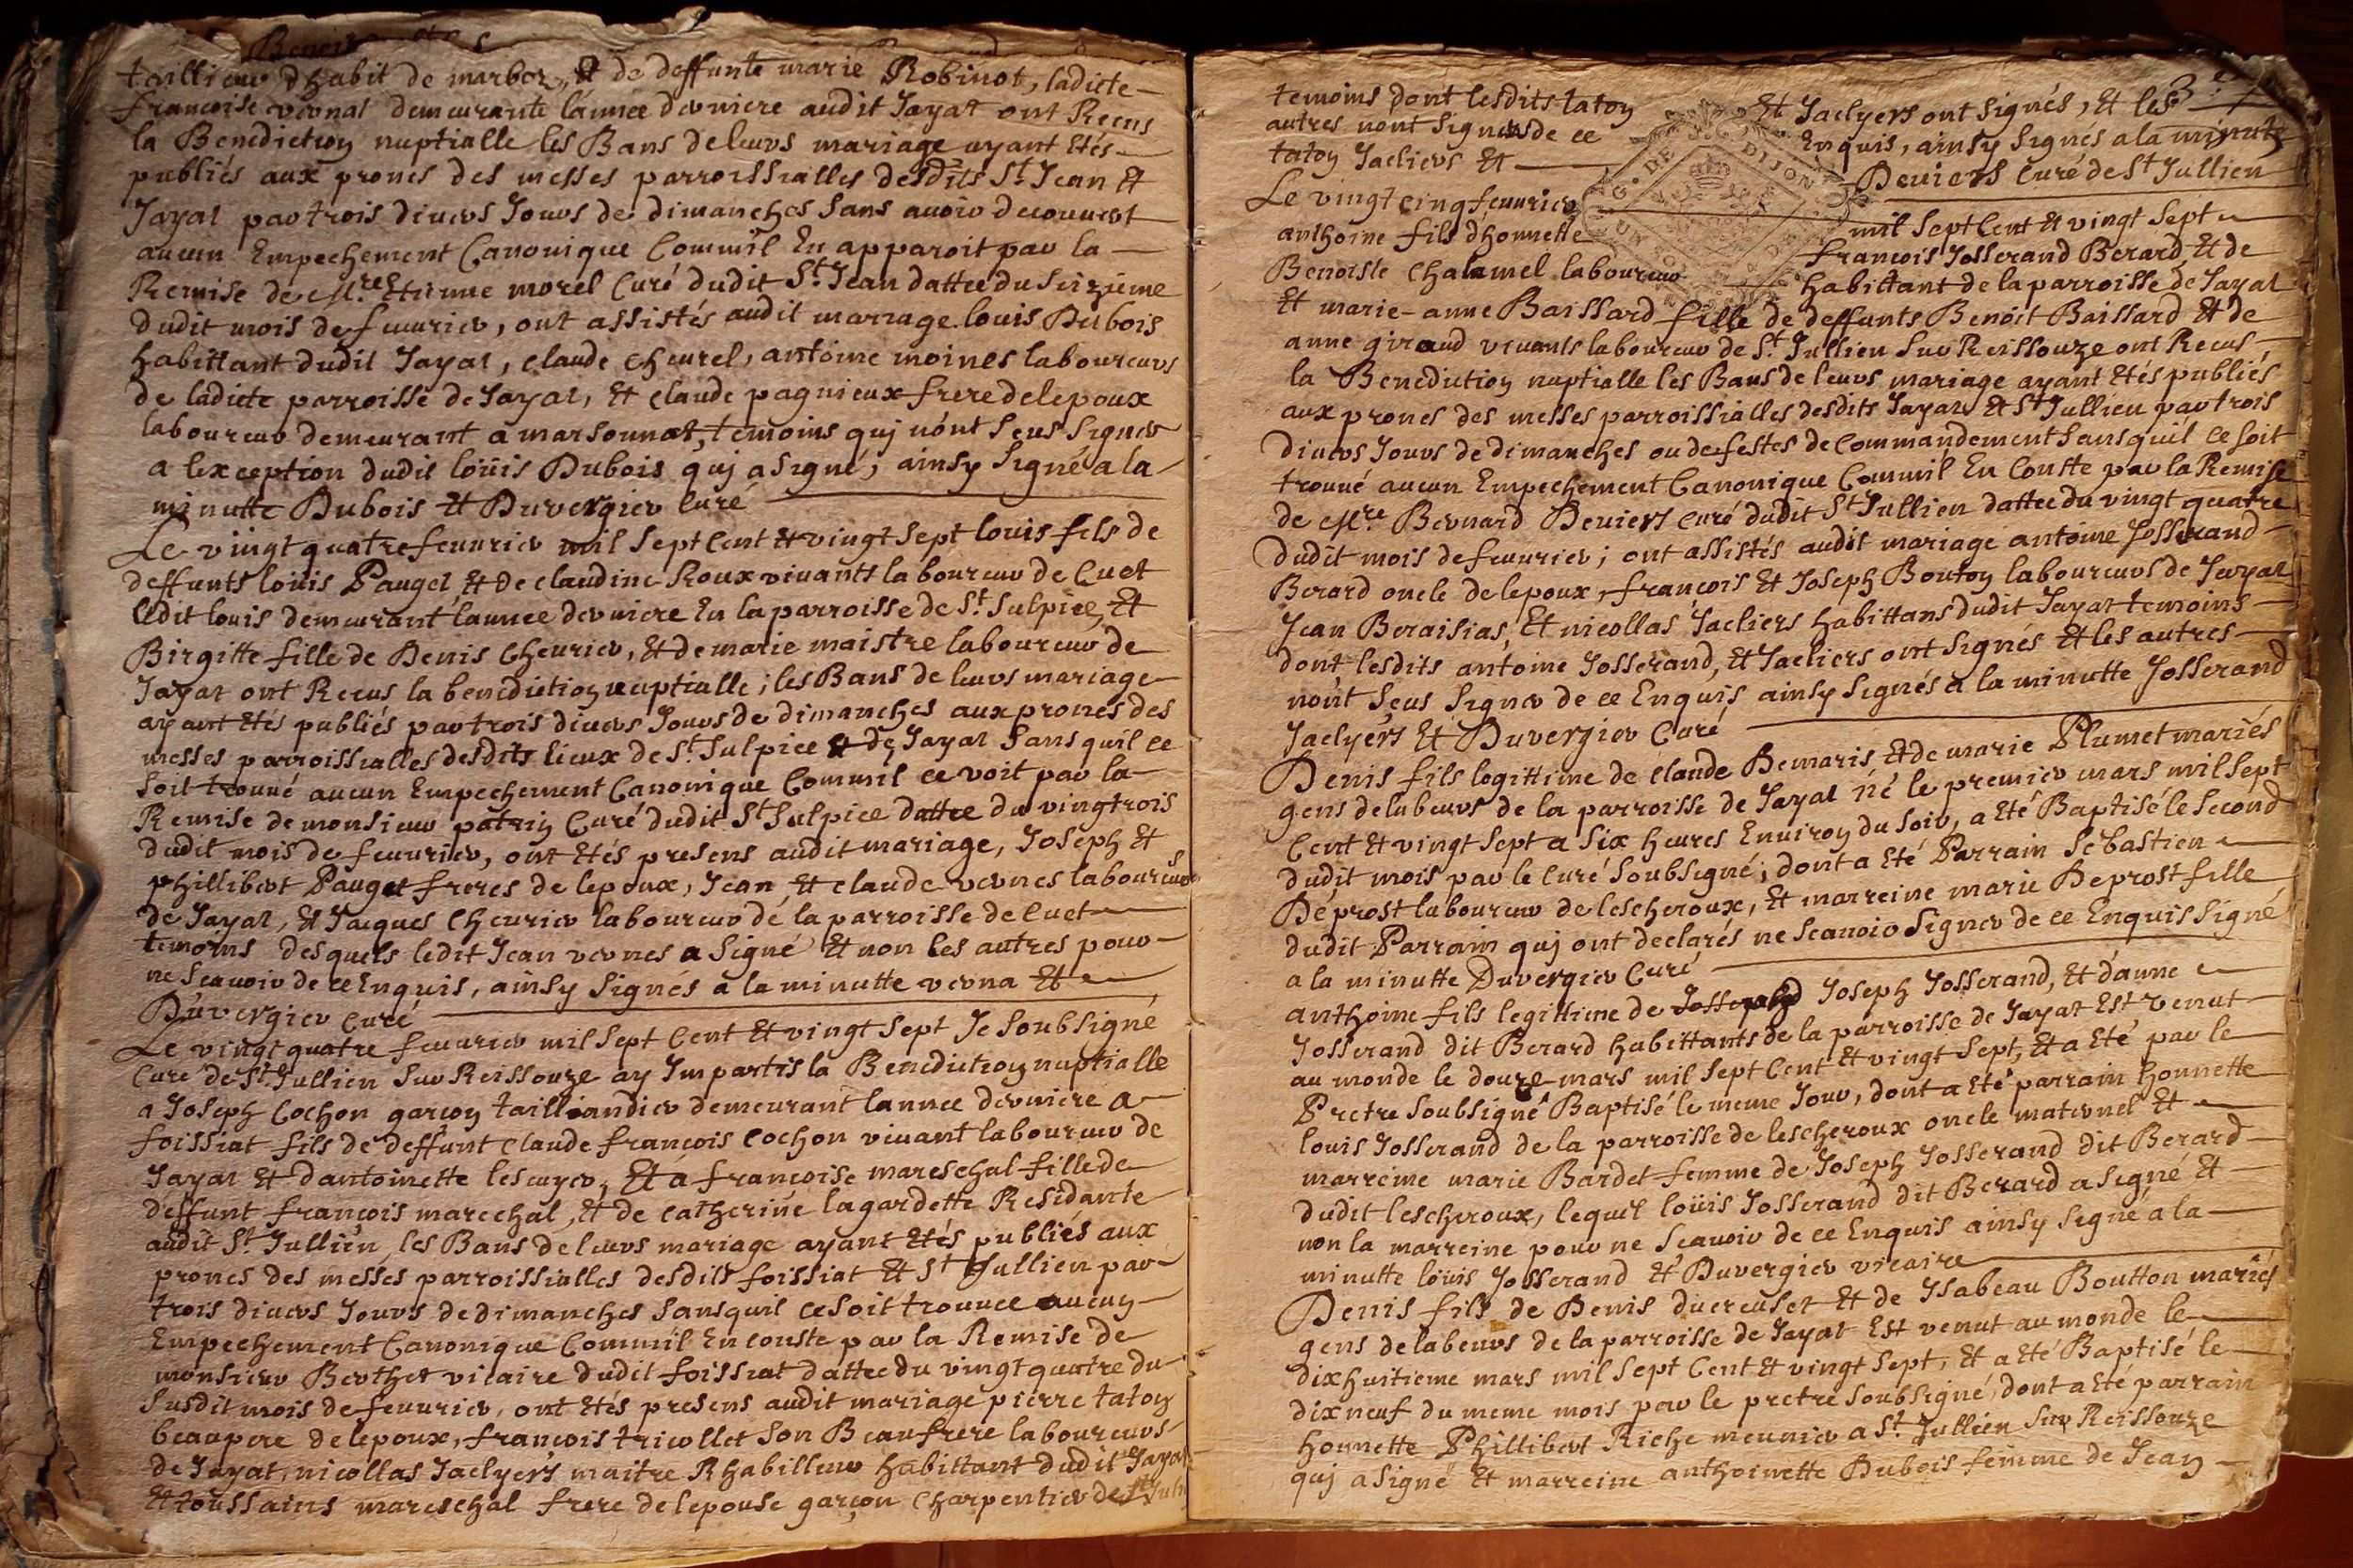 tailleur dhabit de marboz, Et de deffunte marie Robinot, ladicte
francoise vernat demeurante lannee derniere audit Jayat ont Recus
la Benediction nuptialle les Bans de leurs mariage ayant Etés
publiés aux prones des messes parroissialles desdits St Jean Et
Jayat par trois divers Jours de dimanches sans avoir decouvert
aucun Empechement Canonique Commil En apparoit par la
Remise de Mre Etienne morel Curé dudit St Jean dattee du seizieme
dudit mois de feuvrier, ont assistés audit marriage louis Dubois
habittant dudit Jayat, claude cheurel, antoine moines laboureurs
de ladicte parroisse de Jayat, Et claude pagnieux frere de lepoux
laboureur demeurant a marsonnat, temoins quj nont sçus signer
a lexception dudit loüis Dubois quj a signé, ainsy signé a la
minutte Dubois Et Duvergier Curé
Le vingt quatre feuvrier mil sept Cent Et vingt sept louis fils de
deffunts loüis Pauget, Et de claudine Roux vivants laboureur de Cuet
ledit louis demeurant lannee derniere En la parroisse de St Sulpice, Et
Birgitte fille de Denis Cheurier, Et de marie maistre laboureur de
Jayat ont Recus la benediction nuptialle; les Bans de leurs mariage
ayant Etés publiés par trois divers Jours de dimanches aux prones des
messes parroissialles desdits lieux de St Sulpice Et de Jayat sans quil ce
soit trouvé aucun Empechement Canonique Commil ce voit par la
Remise de monsieur patrin Curé dudit St Sulpice dattee du vingtrois
dudit mois de feuvrier, ont Etés presens audit mariage, Joseph Et
phillibert Pauget freres de lepoux, Jean Et claude vernes laboureurs
de Jayat, Et Jacques Cheurier laboureur de la parroisse de Cuet
temoins desquels ledit Jean vernes a signé Et non les autres pour
ne scavoir de ce Enquis, ainsy signés a la minutte verna Et
Duvergier Curé
Le vingt quatre feuvrier mil sept Cent Et vingt sept Je soubsigné
Curé de St Jullien sur Reissouze ay Impartis la Benediction nuptialle
a Joseph Cochon garçon taillandier demeurant lannee derniere a
foissiat fils de deffunt claude francois Cochon vivant laboureur de
Jayat Et dantoinette lescuyer, Et a francoise mareschal fille de
deffunt françois marechal, Et de catherine lagardette Residante
audit St Jullien les Bans de leurs mariage ayant Etés publiés aux
prones des messes parroissialles desdits foissiat Et St Jullien par
trois divers Jours de dimanches sans quil ce soit trouvee aucun
Empechement Canonique Commil En conste par la Remise de
monsieur Berthet vicaire dudit foissiat dattee du vingt quatre du
susdit mois de feuvrier, ont Etés presens audit mariage pierre taton
beaupere de lepoux, francois tricollet son Beaufrere laboureurs
de Jayat, nicollas Jaclyers maitre Rhabilleur habittant dudit Jayat
Et toussains mareschal frere de lepouse garçon charpentier de
temoins dont lesdits taton Et Jaclyers ont signés, Et les
autres nont signer de ce Enquis, ainsy signés a la minutte
taton Jacliers Et Deviers Curé de St Jullien
Le vingt cinq feuvrier mil sept Cent Et vingt sept
anthoine fils dhonnette francois Josserand Berard, Et de
Benoiste Chalamel laboureur habittant de la parroisse de Jayat
Et marie-anne Baissard fille de deffunts Benoit Baissard Et de
anne giraud vivants laboureur de St Jullien sur Reissouze ont Recus
la Benediction nuptialle les Bans de leurs mariage ayant Etés publiés
aux prones des messes parroissialles desdits Jayat Et St Jullien par trois
divers Jours de dimanches ou de festes de Commandement sans quil ce soit
trouvé aucun Empechement Canonique Commil En Conste par la Remise
de Mre Bernard Deviers Curé dudit St Jullien dattee du vingt quatre
dudit mois de feuvrier; ont assistés audit mariage antoine Josserand
Berard oncle de lepoux, françois Et Joseph Bouton laboureurs de Jayat
Jean Beraisias, Et nicollas Jacliers habittans dudit Jayat temoins
dont lesdits antoine Josserand, Et Jacliers ont signés Et les autres
nont sçus signer de ce Enquis ainsy signés a la minutte Josserand
Jaclyers Et Duvergier Curé
Denis fils legittime de claude Demaris Et de marie Plumet mariés
gens de labeurs de la parroisse de Jayat né le premier mars mil sept
Cent Et vingt sept a six heures Environ du soir, a Eté Baptisé le second
dudit mois par le Curé soubsigné; dont a Eté Parrain Sebastien
Deprost laboureur de lescheroux, Et marreine marie Deprost fille
dudit Parrain quj ont declarés ne scavoir signer de ce Enquis signé
a la minutte Duvergier Curé
anthoine fils legittime de Joseph Josserand, Et danne
Josserand dit Berard habittants de la parroisse de Jayat Est venut
au monde le douze mars mil sept Cent Et vingt sept, Et a Eté par le
Pretre soubsigné Baptisé le meme Jour, dont a Eté parrain honnette
louis Josserand de la parroisse de lescheroux oncle maternel Et
marreine marie Bardet femme de Joseph Josserand dit Berard
dudit lescheroux, lequel loüis Josserand dit Berard a signé Et
non la marreine pour ne scavoir de ce Enquis ainsy signé a la
minutte loüis Josserand Et Duvergier vicaire
Denis fils de Denis ducreuset Et de Isabeau Boutton mariés
gens de labeurs de la parroisse de Jayat Est venut au monde le
dixhuitieme mars mil sept Cent Et vingt sept, Et a Eté Baptisé le
dixneuf du meme mois par le pretre soubsigné, dont a Eté parrain
honnette Phillibert Riche meunier a St Jullien sur Reissouze
quj a signé Et marreine anthoinette Dubois femme de Jean